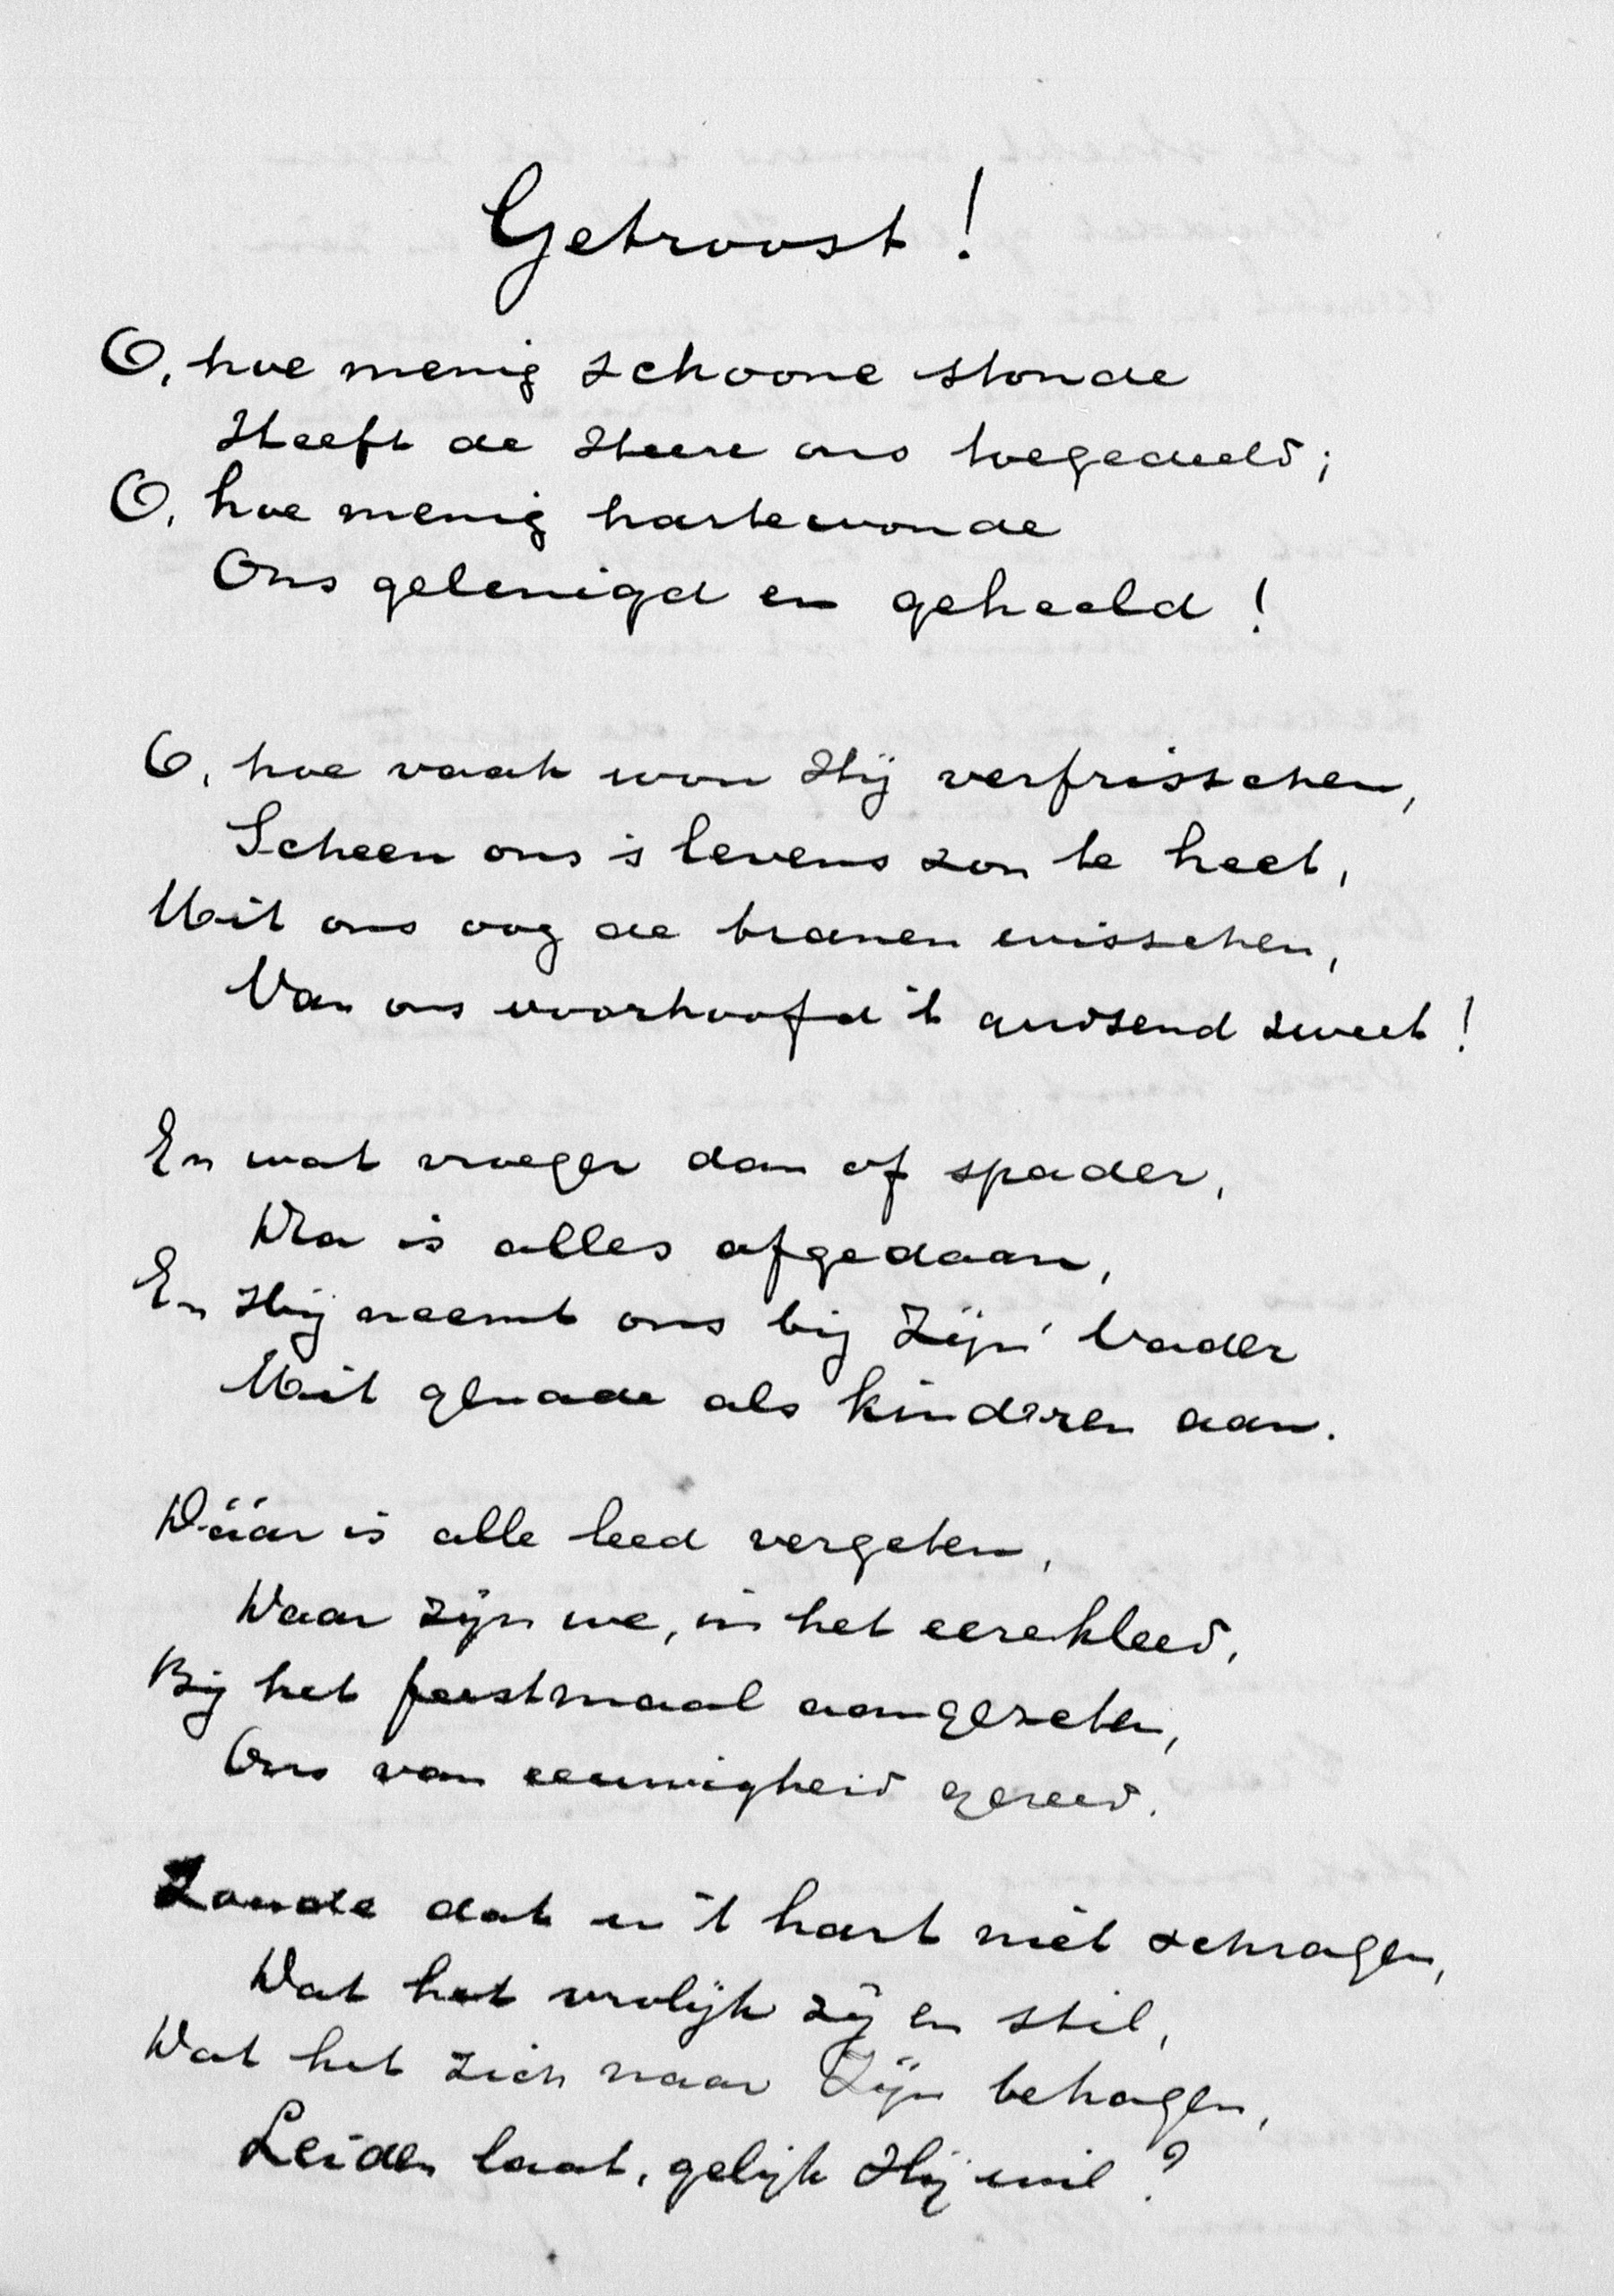 Getroost!
O, hoe menig schoone stonde
Heeft de Heere ons toegedeeld;
O, hoe menig hartewonde
Ons gelenigd en geheeld!
O, hoe vaak won Hij verfrisschen,
Scheen ons 's levens zon te heet,
Uit ons oog de tranen wisschen,
Van ons voorhoofd 't gudsend zweet!
En wat vroeger dan of spader,
Dra is alles afgedaan,
En Hij neemt ons bij Zijn' Vader
Uit genade als kinderen aan.
Dáár is alle leed vergeten,
Daar zijn we, in het eerekleed,
Bij het feestmaal aangezeten,
Ons van eeuwigheid gereed.
Zoude dat u 't hart niet schragen,
Dat het vrolijk zij en stil,
Dat het zich naar Zijn behagen,
Leiden laat, gelijk Hij wil?